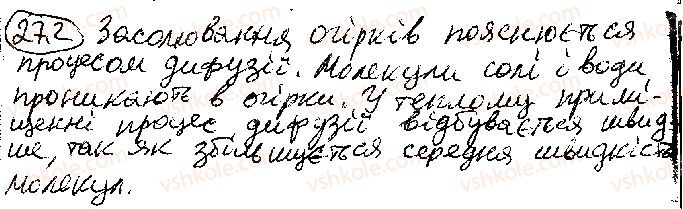 27.2 Засолювання огірків пояснюється
процесом дифузії. Молекули солі і води
проникають в огірки. У теплому примі-
щенні процес дифузії відбувається швид-
ше, так як збільшується середня швидкість
молекул.